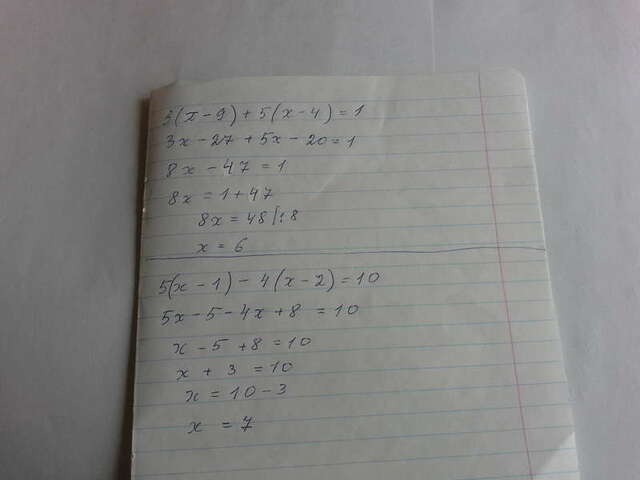 3(x-9)+5(x-4)=1
3x-27+5x-20=1
8x-47=1
8x=1+47
8x=48|:8
x=6
5(x-1)-4(x-2)=10
5x-5-4x+8=10
x-5+8=10
x+3=10
x=10-3
x=7